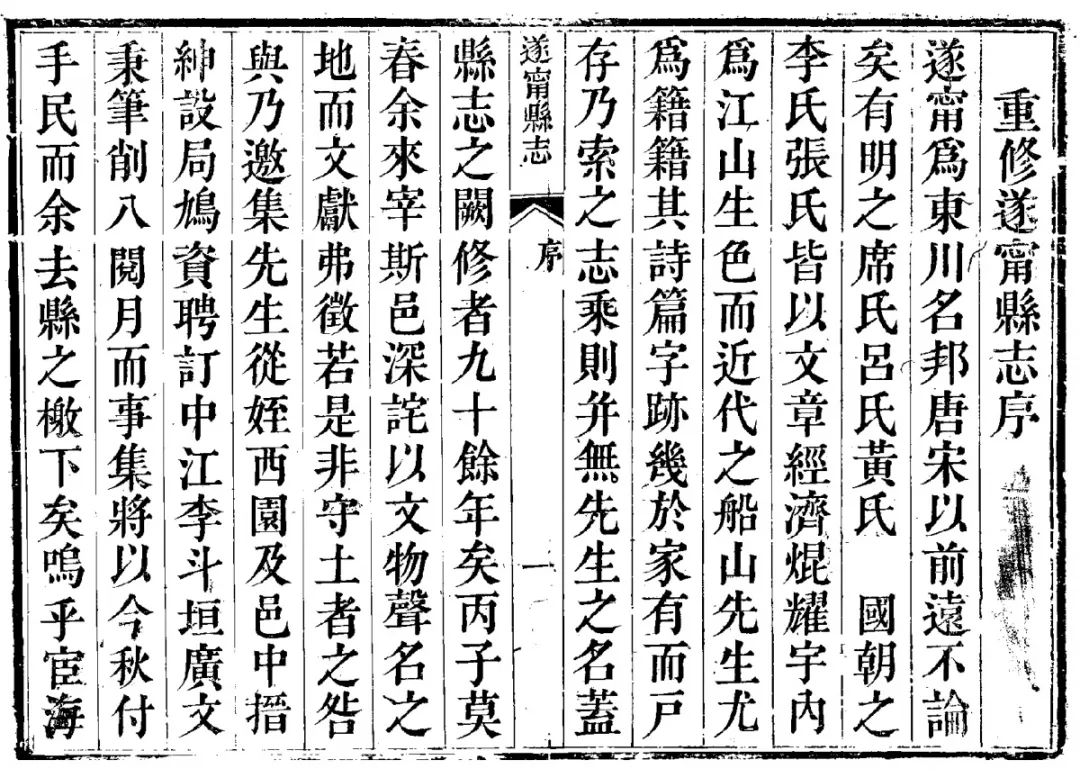 重修遂甯縣志序
遂甯爲東川名邦唐宋以前遠不論
矣有明之席氏呂氏黃氏　國朝之
李氏張氏皆以文章經濟焜耀宇內
爲江山生色而近代之船山先生尤
爲籍籍其詩篇字跡幾於家有而戶
存乃索之志乘則并無先生之名蓋
遂甯縣志
序
一
縣志之闕修者九十餘年矣丙子莫
春余來宰斯邑深詫以文物聲名之
地而文獻弗徵若是非守土者之咎
與乃邀集先生從姪西園及邑中搢
紳設局鳩資聘訂中江李斗垣廣文
秉筆削八閱月而事集將以今秋付
手民而余去縣之檄下矣嗚乎宦海